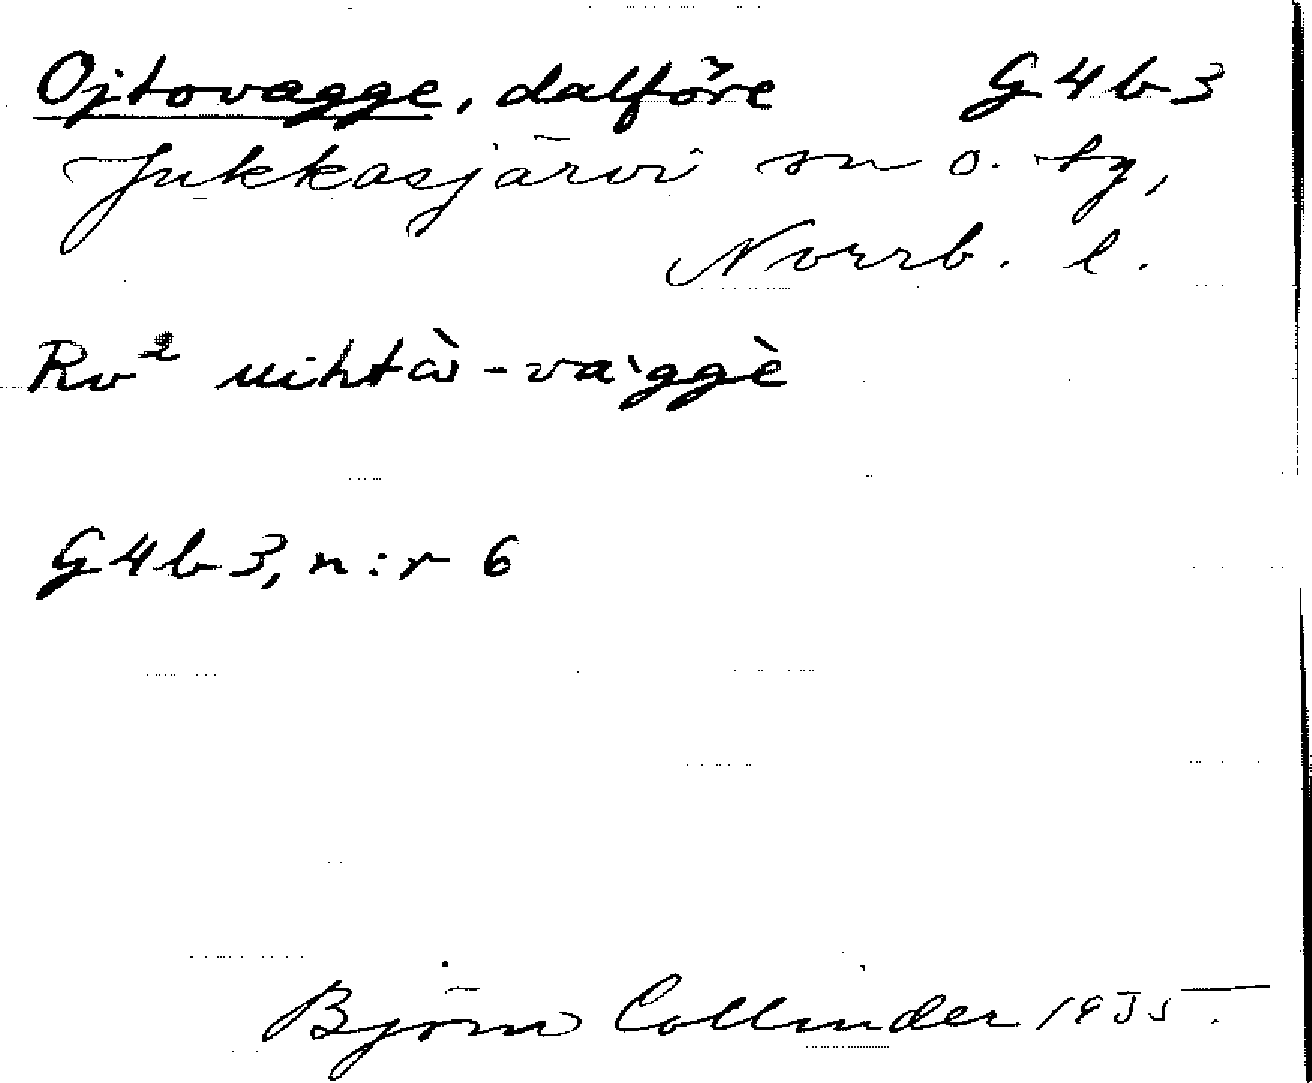 Ojtovagge, dalföre G4b3
Jukkasjärvi sn o. tg,
Norrb. l.
Rv² uihtὼ-va'ggè
G4b3, n:r 6
Björn Collinder 1935.